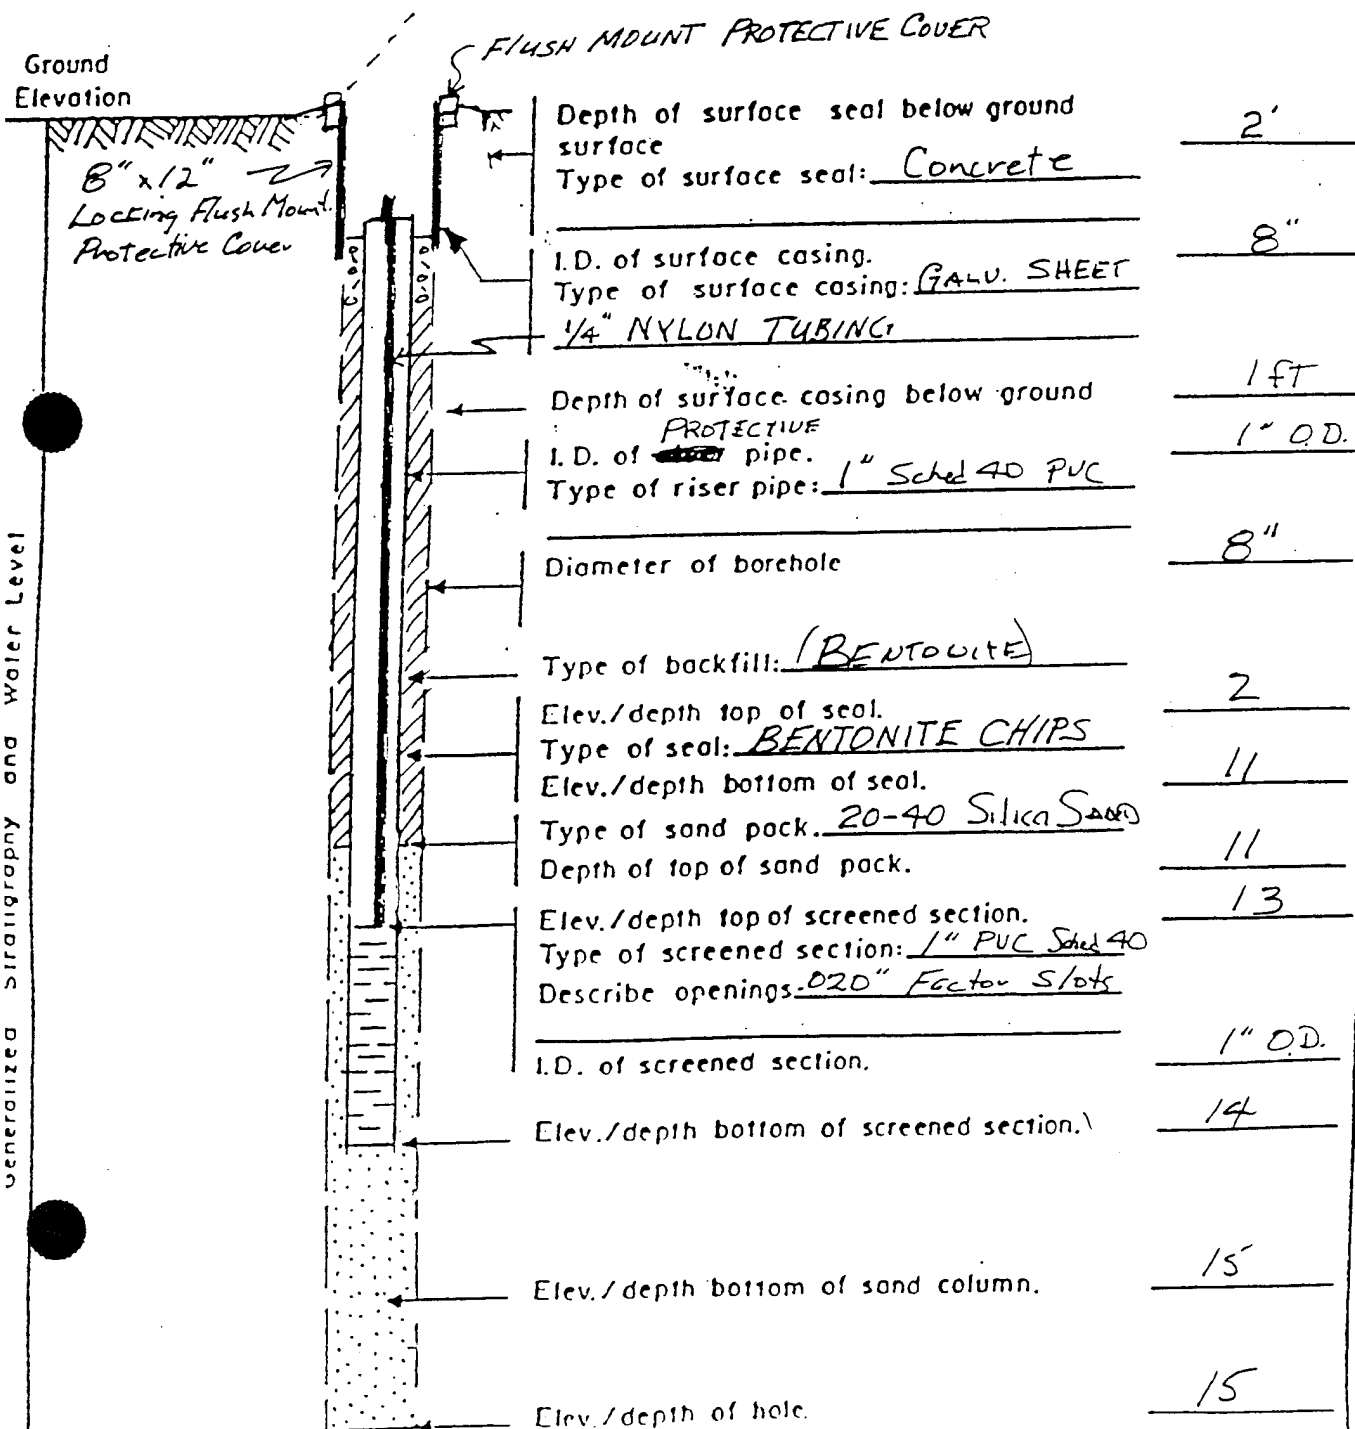 FLUSH MOUNT PROTECTIVE COVER
Ground
Elevation
8" x 12"
Locking Flush Mount
Protective Cover
Depth of surface seal below ground
surface
2'
Type of surface seal: Concrete
I.D. of surface casing.
8"
Type of surface casing: GALV. SHEET
1/4" NYLON TUBING
Depth of surface casing below ground
1 FT
PROTECTIVE
I.D. of pipe.
1" O.D.
Type of riser pipe: 1" Sched 40 PVC
Diameter of borehole
8"
Type of backfill: (BENTONITE)
Elev./depth top of seal.
2
Type of seal: BENTONITE CHIPS
Elev./depth bottom of seal.
11
Type of sand pack. 20-40 Silica SAND
Depth of top of sand pack.
11
Elev./depth top of screened section.
13
Type of screened section: 1" PVC Sched 40
Describe openings .020" Factor Slots
I.D. of screened section.
1" O.D.
Elev./depth bottom of screened section.
14
Elev./depth bottom of sand column.
15
Elev./depth of hole.
15
Generalized Stratigraphy and Water Level